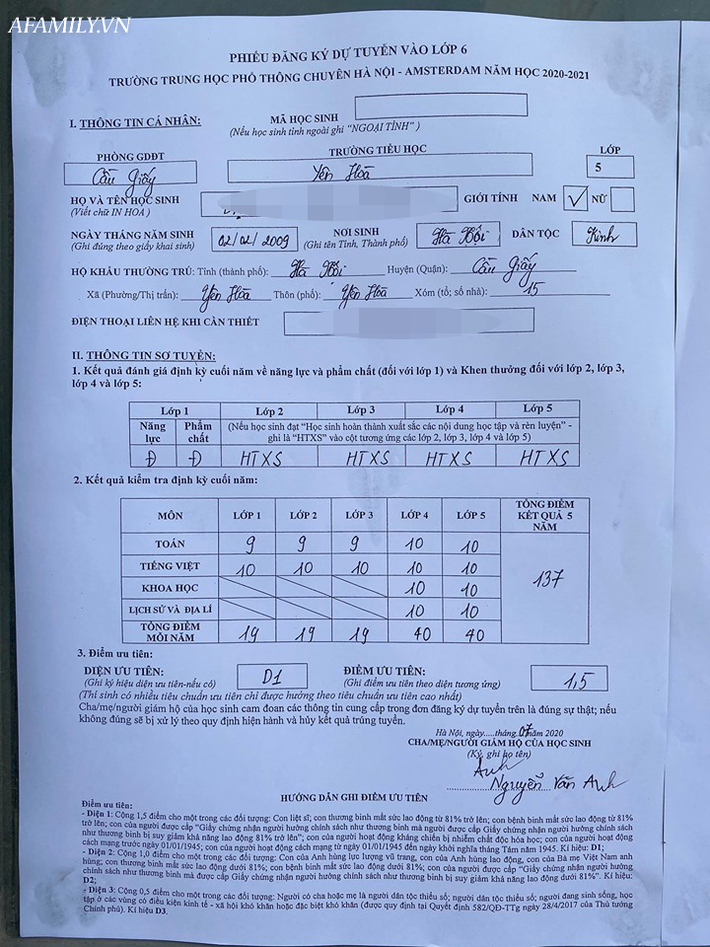 AFAMILY.VN
PHIẾU ĐĂNG KÝ DỰ TUYỂN VÀO LỚP 6
TRƯỜNG TRUNG HỌC PHỔ THÔNG CHUYÊN HÀ NỘI - AMSTERDAM NĂM HỌC 2020-2021
I. THÔNG TIN CÁ NHÂN: MÃ HỌC SINH
(Nếu học sinh tỉnh ngoài ghi "NGOẠI TỈNH")
PHÒNG GDĐT TRƯỜNG TIỂU HỌC LỚP
Cầu Giấy Yên Hoà 5
HỌ VÀ TÊN HỌC SINH GIỚI TÍNH NAM ✓ NỮ
(Viết chữ IN HOA)
NGÀY THÁNG NĂM SINH 02/02/2009 NƠI SINH Hà Nội DÂN TỘC Kinh
(Ghi đúng theo giấy khai sinh) (Ghi tên Tỉnh, Thành phố)
HỘ KHẨU THƯỜNG TRÚ: Tỉnh (thành phố): Hà Nội Huyện (Quận): Cầu Giấy
Xã (Phường/Thị trấn): Yên Hoà Thôn (phố): Yên Hoà Xóm (tổ; số nhà): 15
ĐIỆN THOẠI LIÊN HỆ KHI CẦN THIẾT
II. THÔNG TIN SƠ TUYỂN:
1. Kết quả đánh giá định kỳ cuối năm về năng lực và phẩm chất (đối với lớp 1) và Khen thưởng đối với lớp 2, lớp 3,
lớp 4 và lớp 5:
Lớp 1 Lớp 2 Lớp 3 Lớp 4 Lớp 5
Năng lực Phẩm chất (Nếu học sinh đạt "Học sinh hoàn thành xuất sắc các nội dung học tập và rèn luyện" -
ghi là "HTXS" vào cột tương ứng các lớp 2, lớp 3, lớp 4 và lớp 5)
Đ Đ HTXS HTXS HTXS HTXS
2. Kết quả kiểm tra định kỳ cuối năm:
MÔN LỚP 1 LỚP 2 LỚP 3 LỚP 4 LỚP 5 TỔNG ĐIỂM KẾT QUẢ 5 NĂM
TOÁN 9 9 9 10 10 137
TIẾNG VIỆT 10 10 10 10 10
KHOA HỌC 10 10
LỊCH SỬ VÀ ĐỊA LÍ 10 10
TỔNG ĐIỂM MỖI NĂM 19 19 19 40 40
3. Điểm ưu tiên:
DIỆN ƯU TIÊN: D1 ĐIỂM ƯU TIÊN: 1,5
(Ghi ký hiệu diện ưu tiên-nếu có) (Ghi điểm ưu tiên theo diện tương ứng)
(Thí sinh có nhiều tiêu chuẩn ưu tiên chỉ được hưởng theo tiêu chuẩn ưu tiên cao nhất)
Cha/mẹ/người giám hộ của học sinh cam đoan các thông tin cung cấp trong đơn đăng ký dự tuyển trên là đúng sự thật; nếu
không đúng sẽ bị xử lý theo quy định hiện hành và hủy kết quả trúng tuyển.
Hà Nội, ngày.....tháng.07.năm 2020
CHA/MẸ/NGƯỜI GIÁM HỘ CỦA HỌC SINH
(Ký, ghi họ tên)
Anh
Nguyễn Vân Anh
HƯỚNG DẪN GHI ĐIỂM ƯU TIÊN
Điểm ưu tiên:
- Diện 1: Cộng 1,5 điểm cho một trong các đối tượng: Con liệt sĩ; con thương binh mất sức lao động từ 81% trở lên; con bệnh binh mất sức lao động từ 81%
trở lên; con của người được cấp "Giấy chứng nhận người hưởng chính sách như thương binh mà người được cấp Giấy chứng nhận người hưởng chính sách
như thương binh bị suy giảm khả năng lao động 81% trở lên"; con của người hoạt động kháng chiến bị nhiễm chất độc hóa học; con của người hoạt động
cách mạng trước ngày 01/01/1945; con của người hoạt động cách mạng từ ngày 01/01/1945 đến ngày khởi nghĩa tháng Tám năm 1945. Kí hiệu: D1;
- Diện 2: Cộng 1,0 điểm cho một trong các đối tượng: Con của Anh hùng lực lượng vũ trang, con của Anh hùng lao động, con của Bà mẹ Việt Nam anh
hùng; con thương binh mất sức lao động dưới 81%; con bệnh binh mất sức lao động dưới 81%; con của người được cấp "Giấy chứng nhận người hưởng
chính sách như thương binh mà người được cấp Giấy chứng nhận người hưởng chính sách như thương binh bị suy giảm khả năng lao động dưới 81%". Kí hiệu:
D2;
- Diện 3: Cộng 0,5 điểm cho một trong các đối tượng: Người có cha hoặc mẹ là người dân tộc thiểu số; người dân tộc thiểu số; người đang sinh sống, học
tập ở các vùng có điều kiện kinh tế - xã hội khó khăn hoặc đặc biệt khó khăn (được quy định tại Quyết định 582/QĐ-TTg ngày 28/4/2017 của Thủ tướng
Chính phủ). Kí hiệu D3.